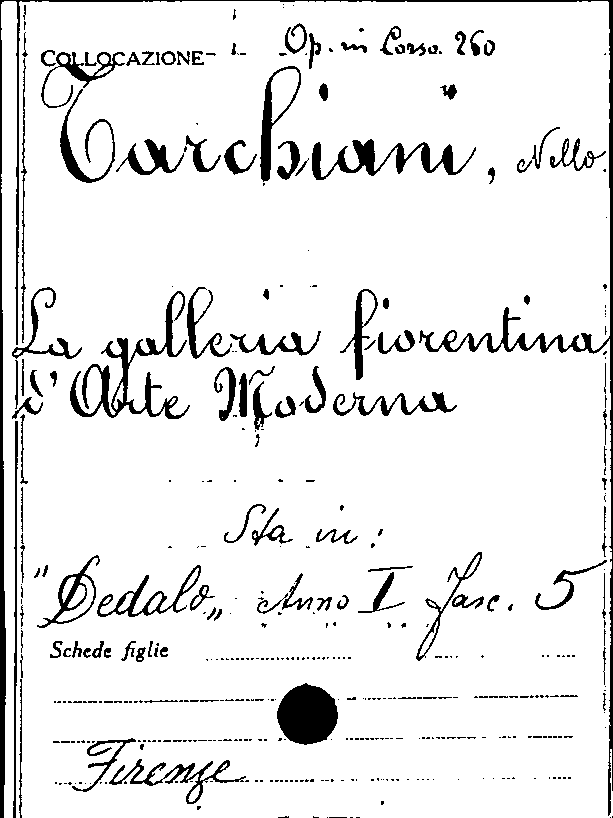 COLLOCAZIONE Op. in Corso. 260
Tarchiani, Nello.
La galleria fiorentina
d'Arte Moderna
Sta in:
"Dedalo„ Anno I Fasc. 5
Schede figlie
Firenze